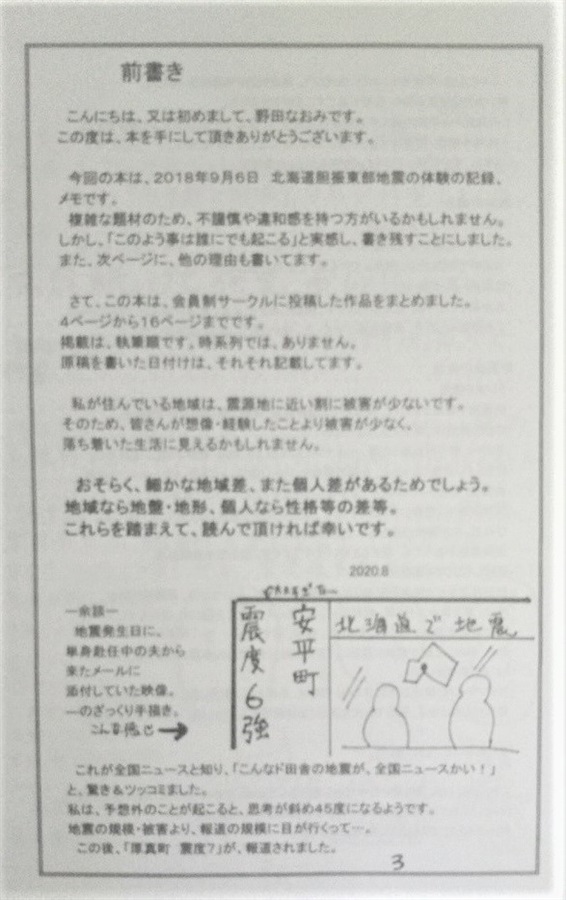 前書き
こんにちは、又は初めまして、野田なおみです。
この度は、本を手にして頂きありがとうございます。
今回の本は、2018年9月6日　北海道胆振東部地震の体験の記録、
メモです。
複雑な題材のため、不謹慎や違和感を持つ方がいるかもしれません。
しかし、「このよう事は誰にでも起こる」と実感し、書き残すことにしました。
また、次ページに、他の理由も書いてます。
さて、この本は、会員制サークルに投稿した作品をまとめました。
4ページから16ページまでです。
掲載は、執筆順です。時系列では、ありません。
原稿を書いた日付けは、それそれ記載してます。
私が住んでいる地域は、震源地に近い割に被害が少ないです。
そのため、皆さんが想像・経験したことより被害が少なく、
落ち着いた生活に見えるかもしれません。
おそらく、細かな地域差、また個人差があるためでしょう。
地域なら地盤・地形、個人なら性格等の差等。
これらを踏まえて、読んで頂ければ幸いです。
2020.8
―余談―
地震発生日に、
単身赴任中の夫から
来たメールに
添付していた映像。
―のざっくり手描き。
こんな感じ
安平町
震度6強
北海道で地震
これが全国ニュースと知り、「こんなド田舎の地震が、全国ニュースかい！」
と、驚き＆ツッコミました。
私は、予想外のことが起こると、思考が斜め45度になるようです。
地震の規模・被害より、報道の規模に目が行くって…。
この後、「厚真町　震度7」が、報道されました。
3